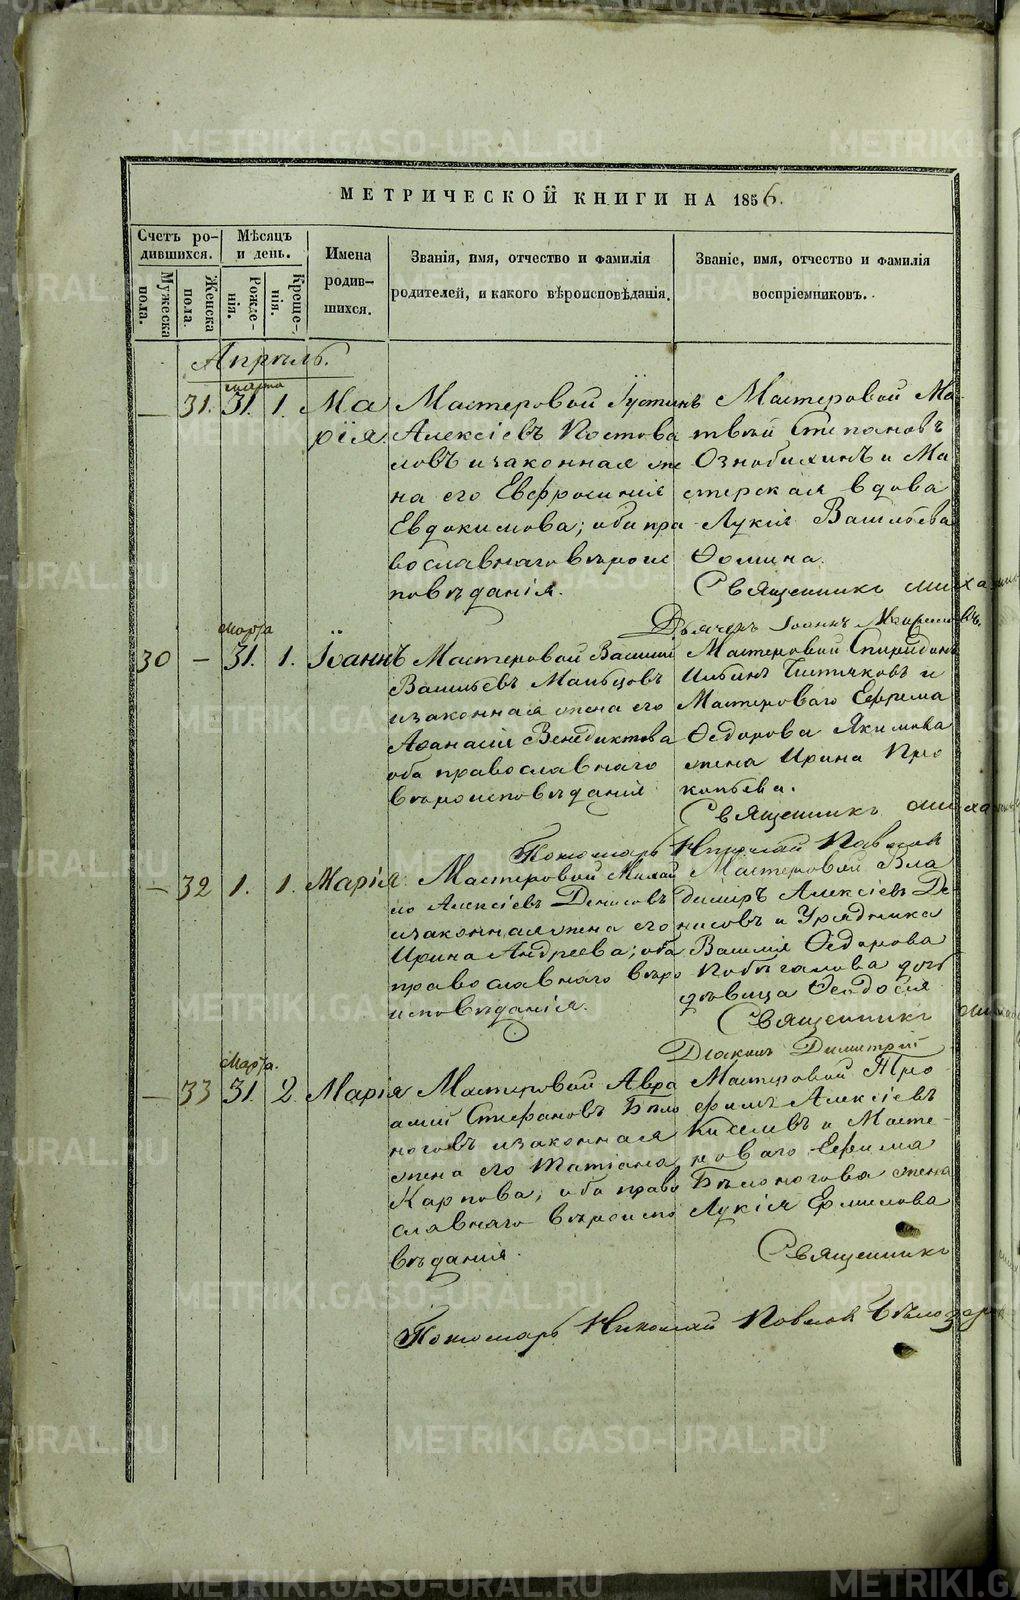 МЕТРИЧЕСКОЙ КНИГИ НА 1856.
Счетъ родившихся.
Мужеска пола.
Женска пола.
Мѣсяцъ и день.
Рожденія.
Крещенія.
Имена родившихся.
Званія, имя, отчество и фамилія родителей, и какого вѣроисповѣданія.
Званіе, имя, отчество и фамилія воспріемниковъ.
Апрѣль.
марта
— 31. 31. 1. Марія
Мастеровой Іустинъ
Алексіевъ Постова
ловъ и законная же
на его Евфросинія
Евдокимова; оба пра
вославнаго вѣроис
повѣданія.
Мастеровой Ма-
твѣй Степановъ
Ознобихинъ и Ма
стерская вдова
Лукія Васильева
Ѳомина.
Священникъ Миха
Дьячекъ Іоаннъ
Марта
30 — 31. 1. Іоаннъ
Мастеровой Василій
Васильевъ Мальцовъ
и законная жена его
Аѳанасія Венедиктова
оба православнаго
вѣроисповѣданія
Мастеровой Спиридонъ
Ильинъ и
Мастероваго Ефрема
Ѳедорова Якимова
жена Ирина Про
копьева.
Священникъ Миха
Пономарь Николай Павлов
— 32 1. 1. Марія
Мастеровой Михай
ло Алексіевъ Денисовъ
и законная жена его
Ирина Андреева; оба
православнаго вѣро
исповѣданія.
Мастеровой Вла
димиръ Алексіевъ Де-
нисовъ и Урядника
Василія Ѳедорова
Побѣгалова дочь
дѣвица Ѳеодосія
Священникъ
Діаконъ Димитрій
Марта.
— 33 31. 2. Марія
Мастеровой Авра
амій Стефановъ Бѣло
ноговъ и законная
жена его Татіана
Карпова; оба право
славнаго вѣроиспо
вѣданія.
Мастеровой Тро-
фимъ Алексіевъ
Киселевъ и Масте-
роваго Ефима
Бѣлоногова жена
Лукія Ермилова
Священникъ
Пономарь Николай Павлов Бѣлозер
METRIKI.GASO-URAL.RU